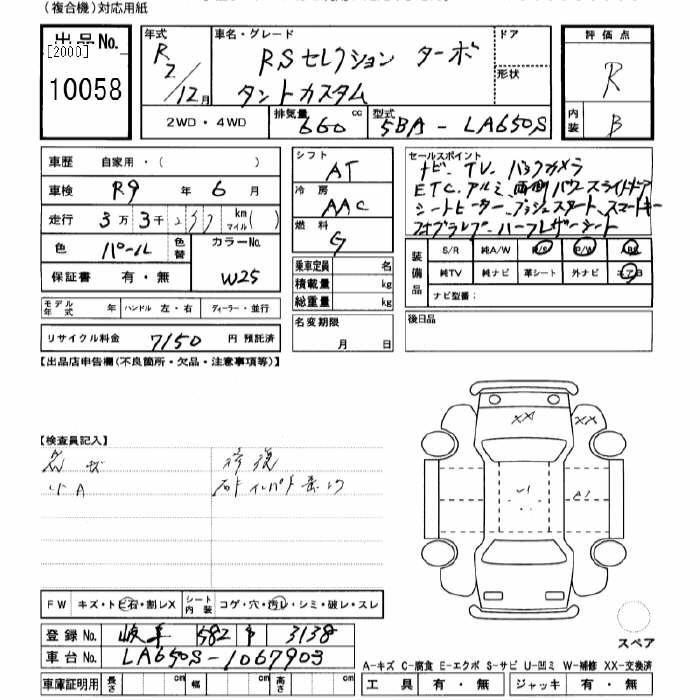 (複合機)対応用紙
出品No.
[2000]
10058
年式
R 2/12月
車名・グレード
RSセレクション ターボ
タントカスタム
ドア
形状
評価点
R
内装
B
2WD・4WD
排気量
660 cc
型式
5BA-LA650S
車歴 自家用・( )
車検 R9 年 6 月
走行 3万3千 km マイル ( )
色 パール 色替
カラーNo.
W25
保証書 有・無
モデル年式 年 ハンドル 左・右 ディーラー・並行
リサイクル料金 7150 円 預託済
シフト
AT
冷房
AAC
燃料
G
乗車定員 名
積載量 kg
総重量 kg
名変期限
月 日
セールスポイント
ナビ、TV、バックカメラ
ETC、アルミ、両側パワースライドドア
シートヒーター、プッシュスタート、スマートキー
ハーフレザーシート
装備品
S/R 純A/W P/S P/W ABS
純TV 純ナビ 革シート 外ナビ エアB
ナビ型番:
後日品
【出品店申告欄(不良箇所・欠品・注意事項等)】
【検査員記入】
修復
小A
XX
XX
U1
A1
FW キズ・トビ石・割レX シート内装 コゲ・穴・汚レ・シミ・破レ・スレ
登録No. 岐阜 582 3138
車台No. LA650S-1067903
車庫証明用 長さ cm 幅 cm 高さ cm
スペア
A-キズ C-腐食 E-エクボ S-サビ U-凹ミ W-補修 XX-交換済
工具 有・無 ジャッキ 有・無